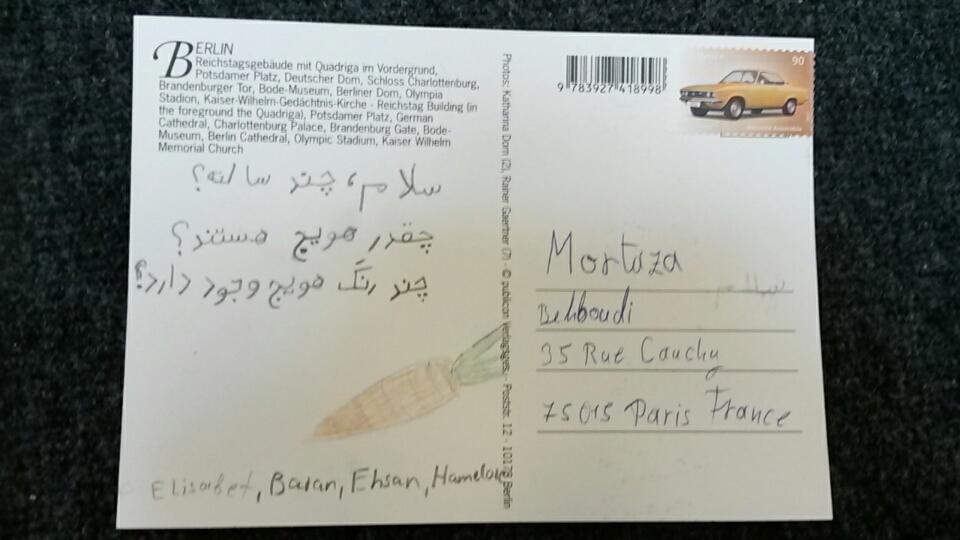 BERLIN
Reichstagsgebäude mit Quadriga im Vordergrund,
Potsdamer Platz, Deutscher Dom, Schloss Charlottenburg,
Brandenburger Tor, Bode-Museum, Berliner Dom, Olympia
Stadion, Kaiser-Wilhelm-Gedächtnis-Kirche - Reichstag Building (in
the foreground the Quadriga), Potsdamer Platz, German
Cathedral, Charlottenburg Palace, Brandenburg Gate, Bode-
Museum, Berlin Cathedral, Olympic Stadium, Kaiser Wilhelm
Memorial Church
سلام، چند سالته؟
چقدر هویج هستند؟
چند رنگ هویج وجود دارد؟
Elisabet, Baran, Ehsan,
Photos: Katharina Dorn (2), Rainer Gaertner (7) - © publicon Verlagsges. - Poststr. 12 - 10178 Berlin
9 783927 418998
90
Mortuza
سلام
Behboudi
35 Rue Cauchy
75015 Paris France